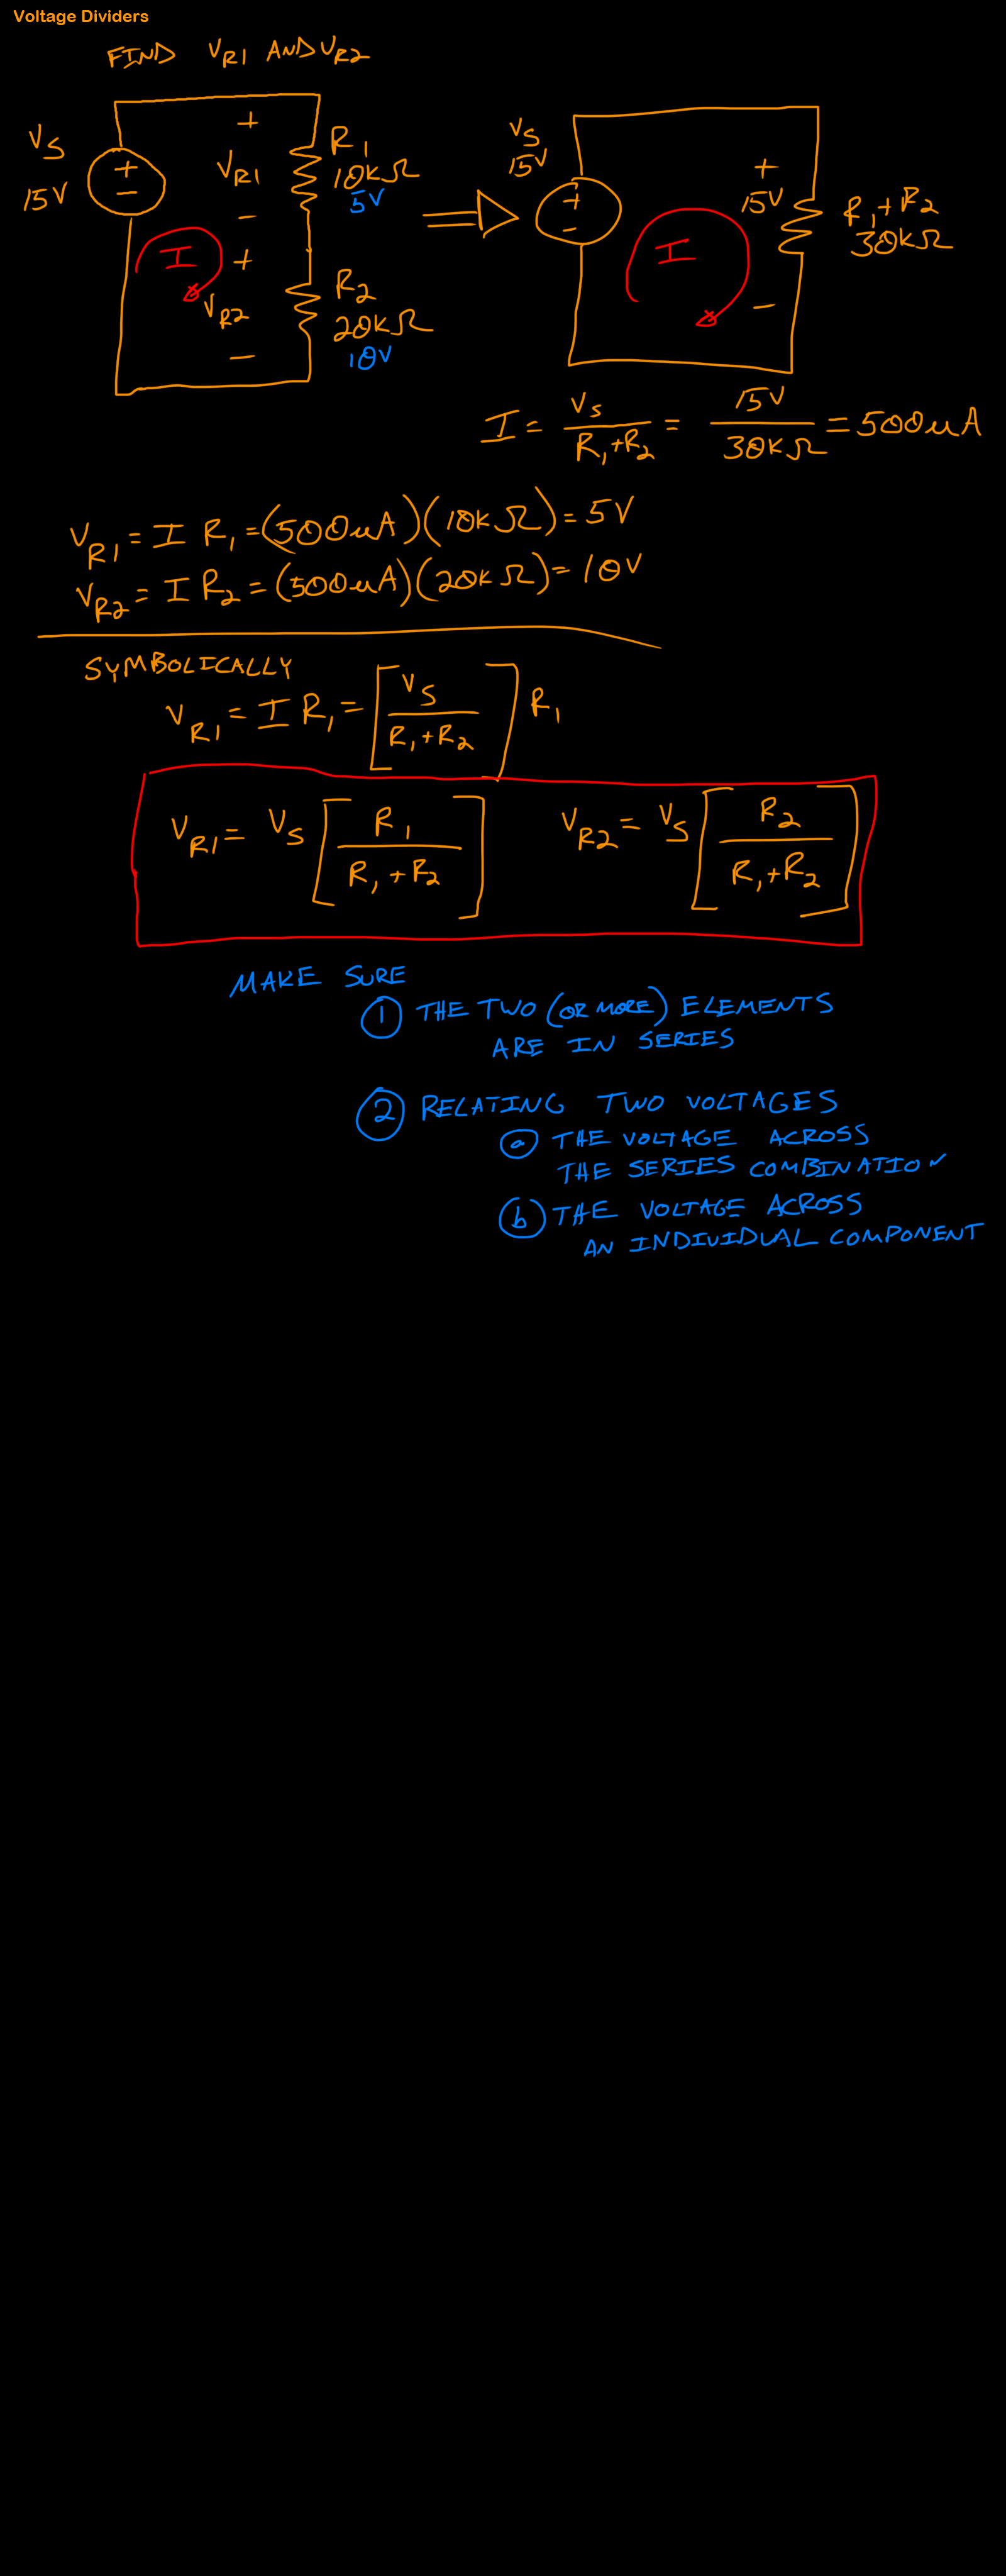 Voltage Dividers
FIND V_R1 AND V_R2
V_S
15V
+
-
+
V_R1
-
+
V_R2
-
I
R_1
10KΩ
5V
R_2
20KΩ
10V
V_S
15V
+
-
I
+
15V
-
R_1+R_2
30KΩ
I = V_S / (R_1+R_2) = 15V / 30KΩ = 500uA
V_R1 = I R_1 = (500uA)(10KΩ) = 5V
V_R2 = I R_2 = (500uA)(20KΩ) = 10V
SYMBOLICALLY
V_R1 = I R_1 = [V_S / (R_1+R_2)] R_1
V_R1 = V_S [R_1 / (R_1+R_2)] V_R2 = V_S [R_2 / (R_1+R_2)]
MAKE SURE
1 THE TWO (OR MORE) ELEMENTS
ARE IN SERIES
2 RELATING TWO VOLTAGES
a THE VOLTAGE ACROSS
THE SERIES COMBINATION
b THE VOLTAGE ACROSS
AN INDIVIDUAL COMPONENT